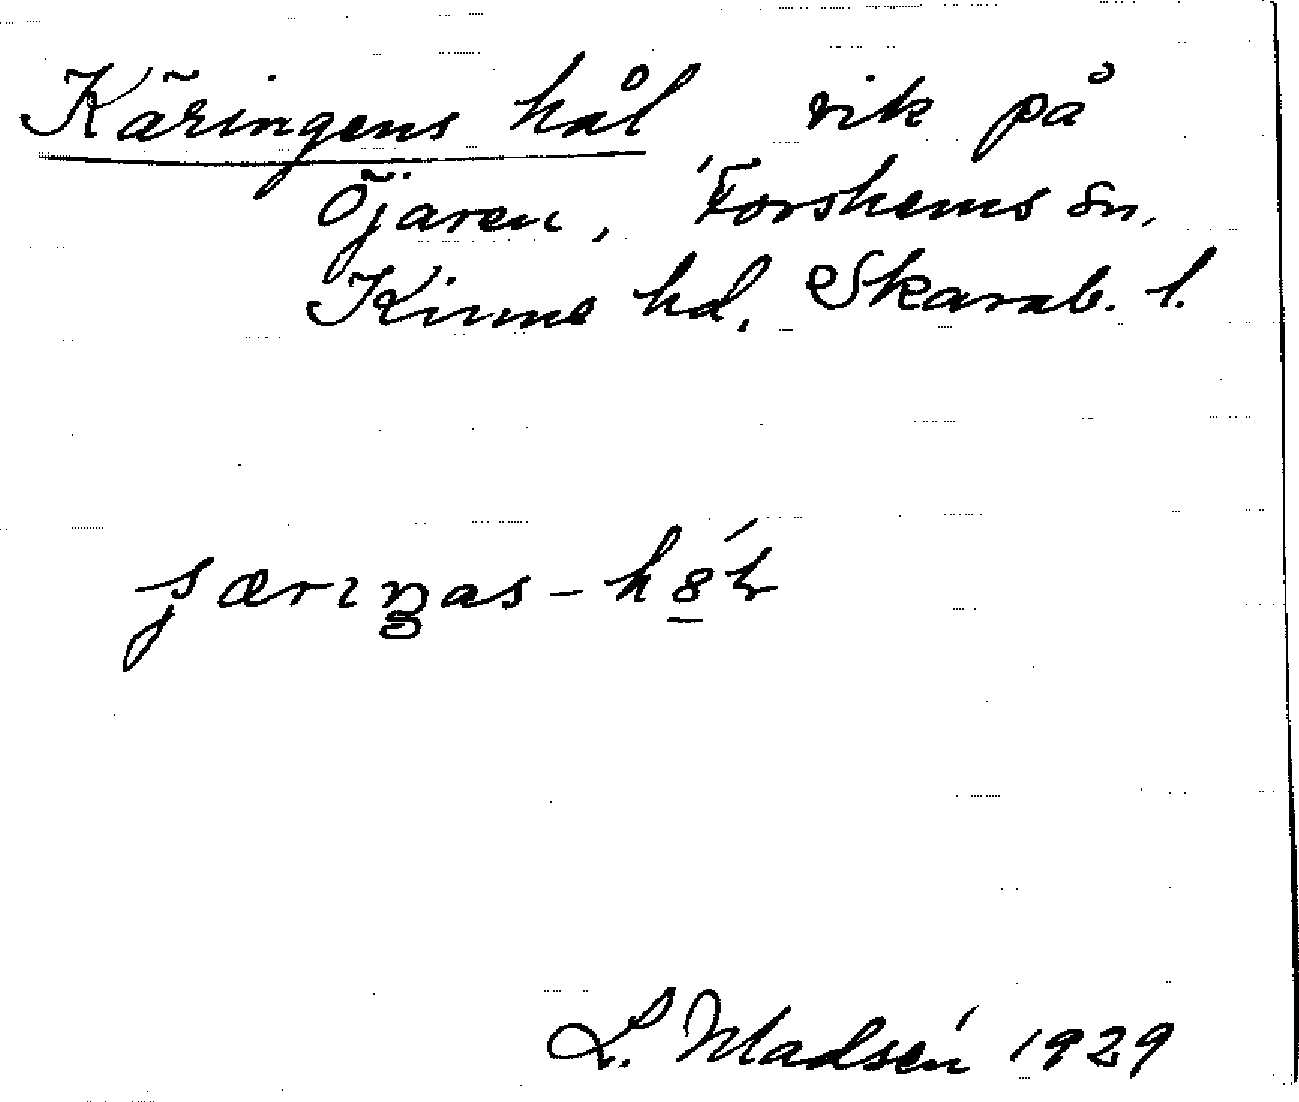 Käringens hål vik på
Öjaren, Forshems sn,
Kinne hd, Skarab. l.
L. Madsén 1929